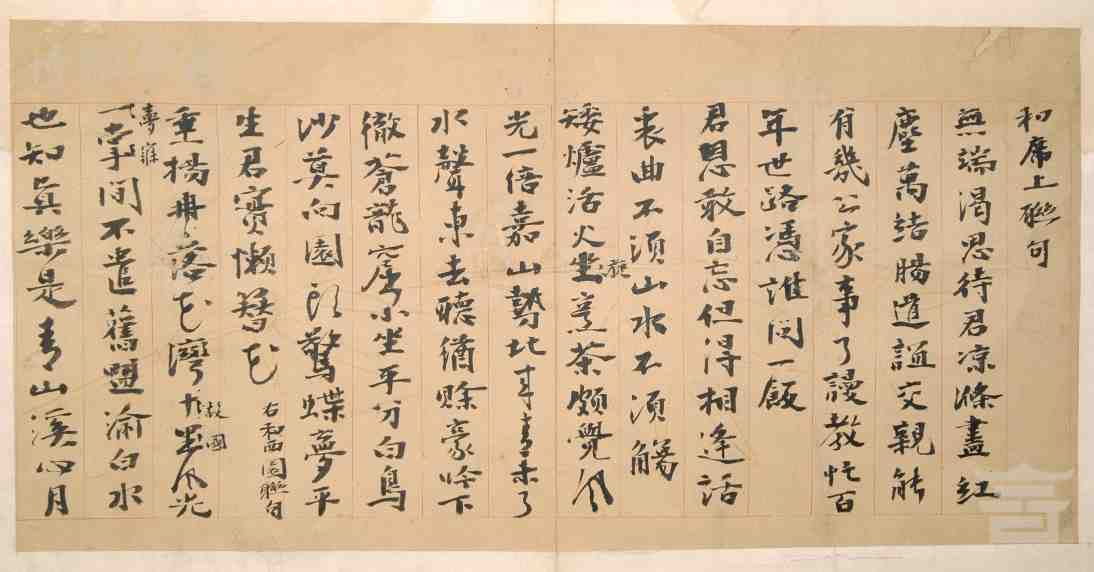 和席上聯句
無端渴思待君凉滌盡紅
塵萬結腸道誼交親能
有幾公家事了謾教忙百
年世路憑誰問一飯
君恩敢自忘但得相逢話
衷曲不須山水不須觴
矮爐活火坐旋烹茶頗覺風
光一倍嘉山勢北来青未了
水聲東去聽猶賒豪吟下
徹蒼龍窟小坐平分白鳥
沙莫向園驚蝶夢平
生君實懶簪花
右和西園聯句
垂楊舟落花灣故國風光
夢寐
一掌間不遣舊盟渝白水
也知眞樂是青山溪心月